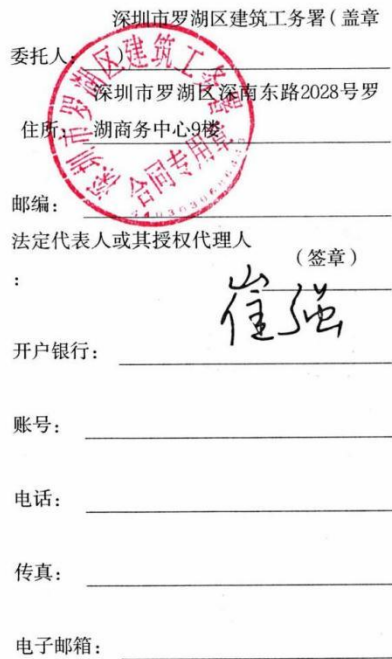 深圳市罗湖区建筑工务署(盖章
委托人: )
深圳市罗湖区深南东路2028号罗
住所: 湖商务中心9楼
深圳市罗湖区建筑工务署
合同专用章
邮编:
法定代表人或其授权代理人
(签章)
:
崔强
开户银行:
账号:
电话:
传真:
电子邮箱: